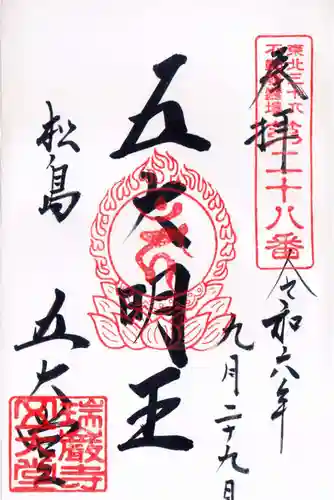 奉拝
東北三十六
不動尊霊場
二十八番
令和六年
九月二十九日
五大明王
松島
五大堂
瑞巌寺
五大堂